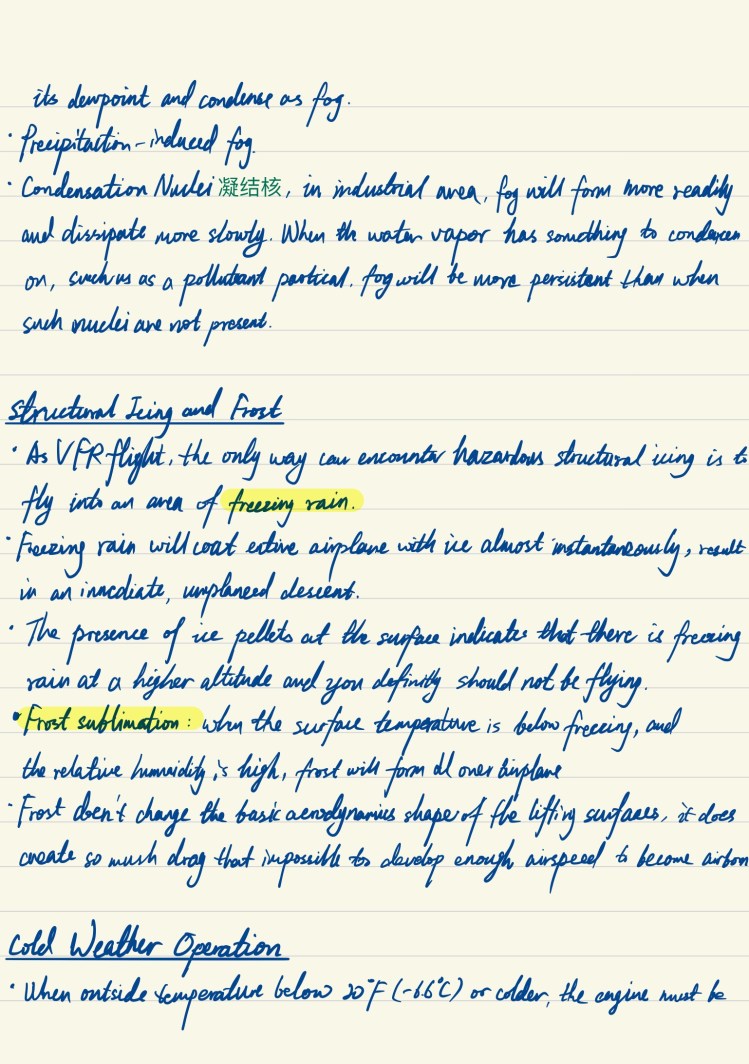 its dewpoint and condense as fog.
· Precipitation-induced fog.
· Condensation Nuclei 凝结核, in industrial area, fog will form more readily
and dissipate more slowly. When the water vapor has something to condense
on, such us as a pollutant partical, fog will be more persistent than when
such nuclei are not present.
Structural Icing and Frost
· As VFR flight, the only way can encounter hazardous structural icing is to
fly into an area of freezing rain.
· Freezing rain will coat entire airplane with ice almost instantaneously, result
in an immediate, unplaned descent.
· The presence of ice pellets at the surface indicates that there is freezing
rain at a higher altitude and you definitly should not be flying.
· Frost sublimation: when the surface temperature is below freezing, and
the relative humidity is high, frost will form all over airplane
· Frost doen't change the basic aerodynamics shape of the lifting surfaces, it does
create so mush drag that impossible to develop enough airspeed to become airborn
Cold Weather Operation
· When outside temperature below 20°F (-6.6°C) or colder, the engine must be